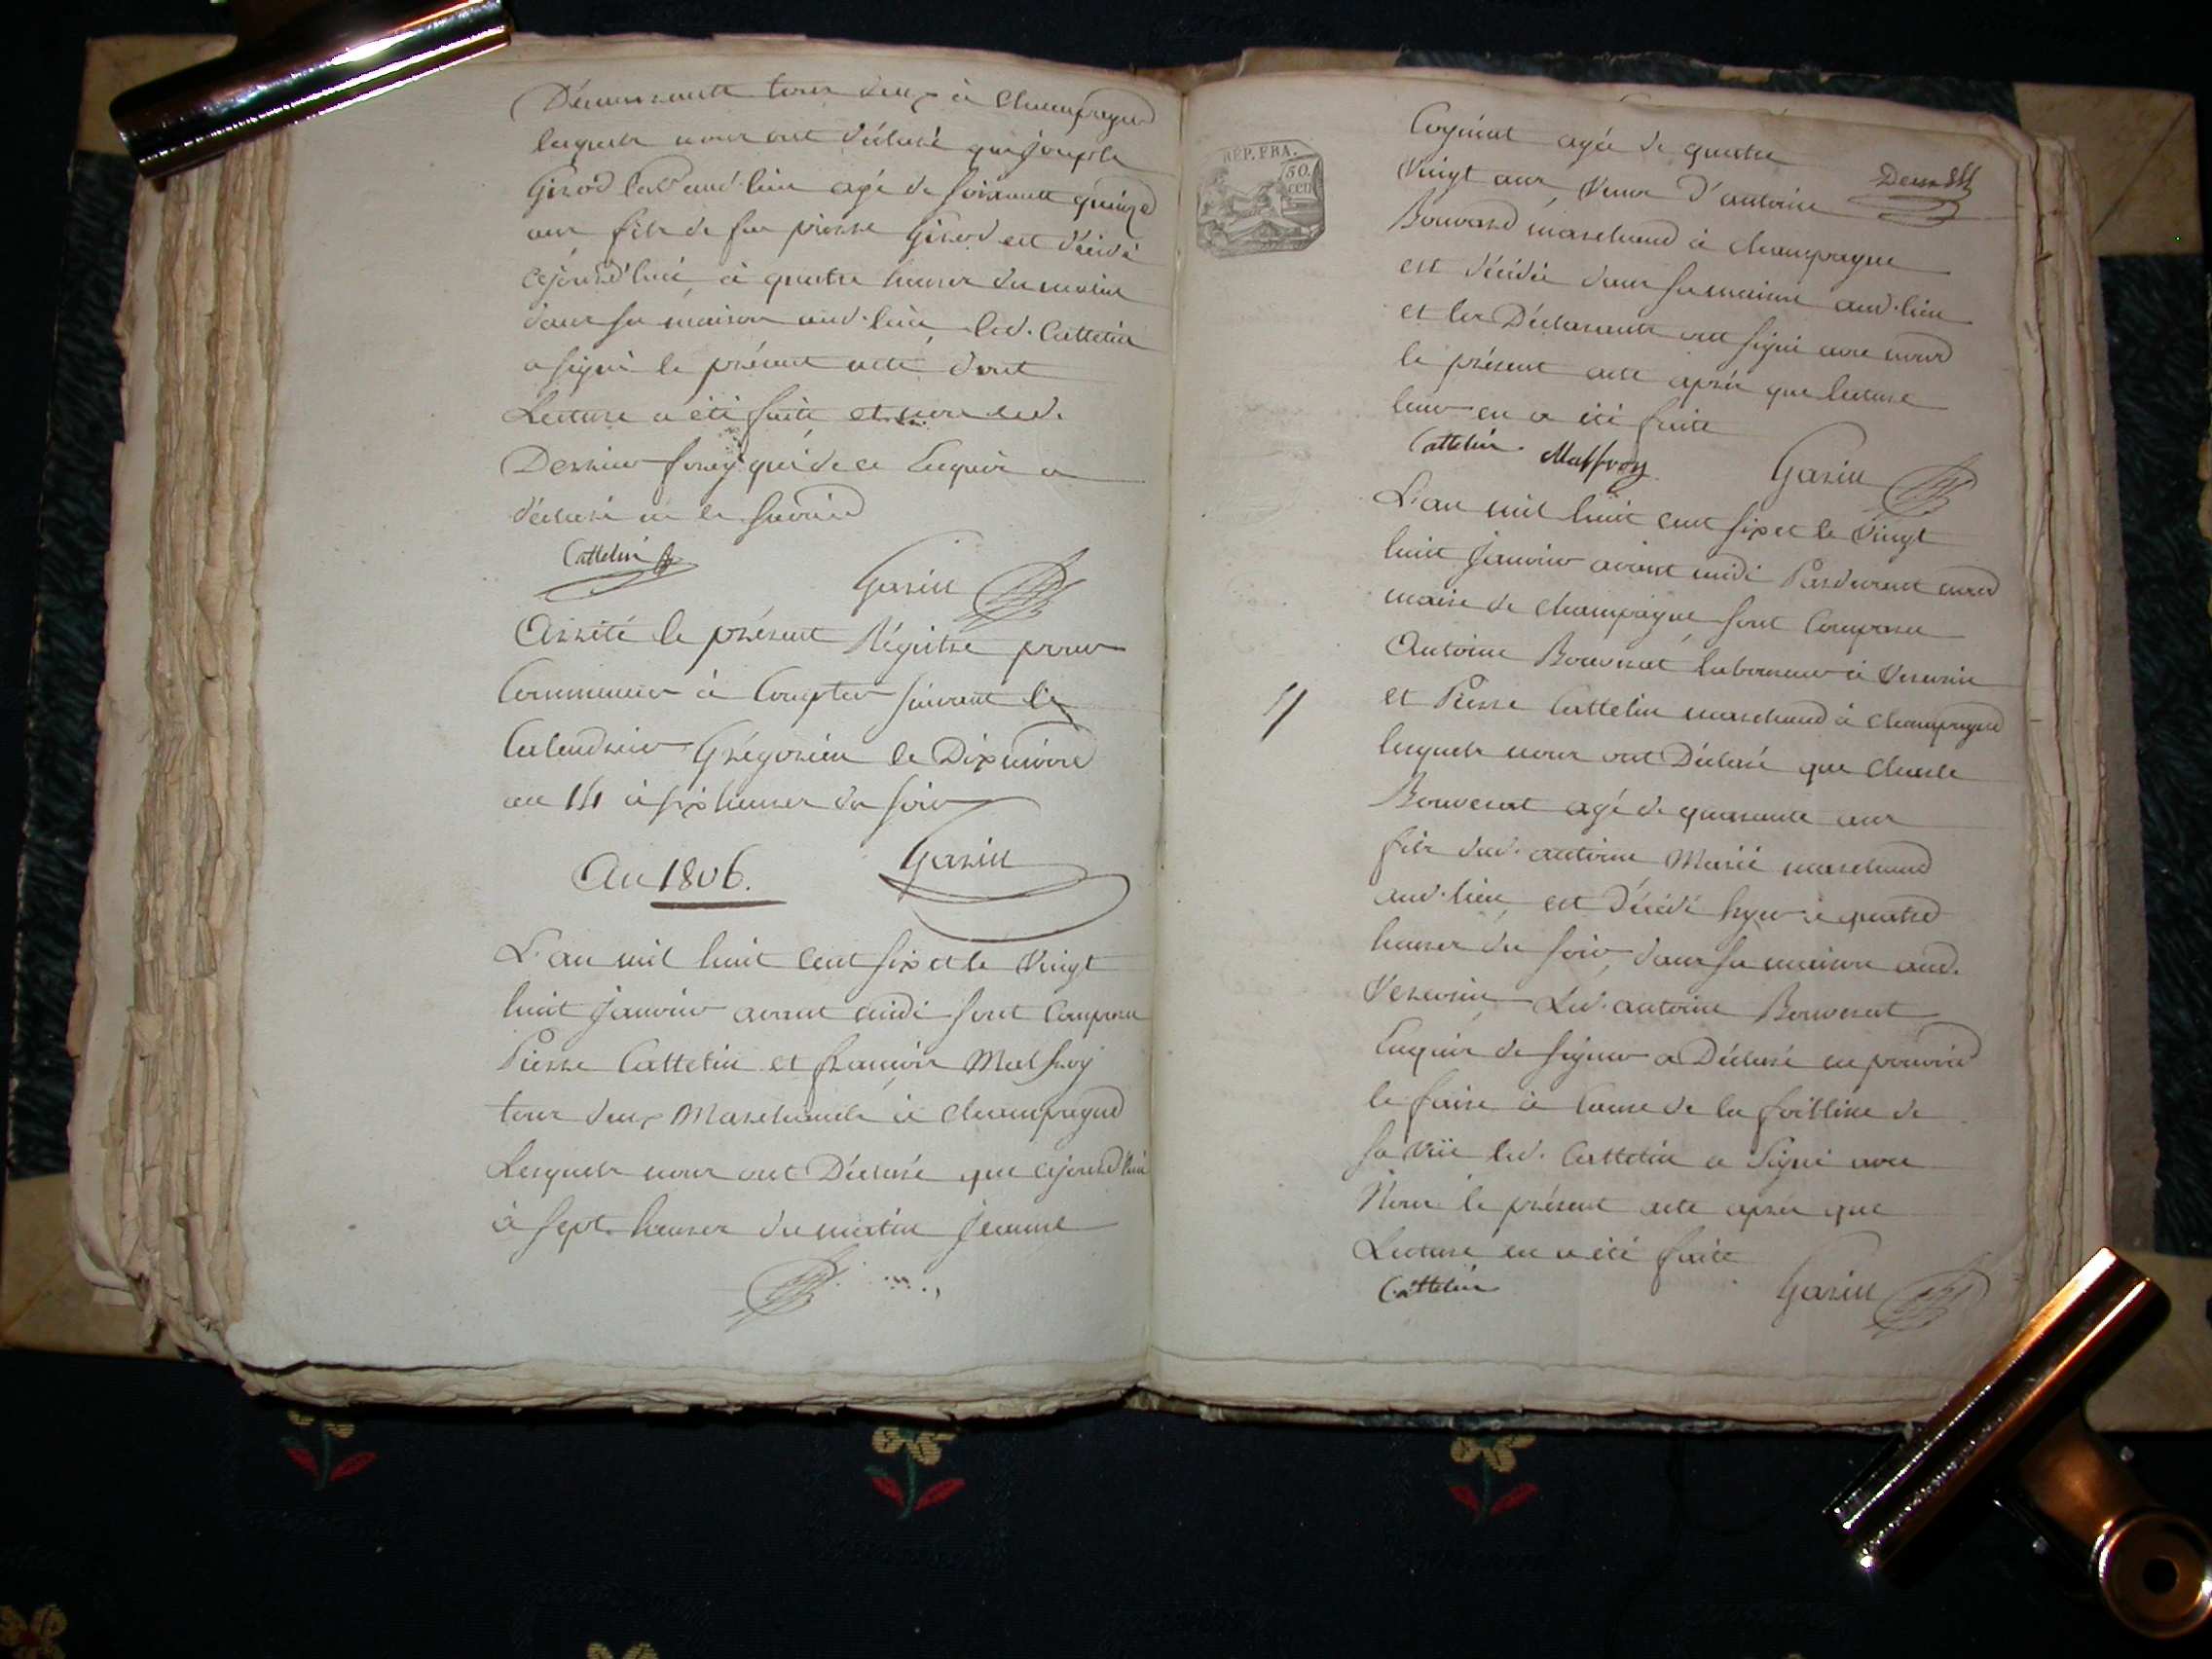 Demeurants tous deux à Champagne
lesquels nous ont déclaré que Joseph
Girod aud. lieu agé de soixante quinze
ans fils de feu pierre Girod est décédé
cejourd'hui à quatre heures du matin
dans sa maison aud. lieu led. Cattelin
a signé le présent acte dont
Lecture a été faite et non led.
Dernier qui de ce Enquis a
déclaré ne le savoir
Cattelin
Garin
Arrêté le présent Régitre pour
Commencer à Compter suivant le
Calendrier Grégorien le Dix nivose
an 14 à six heures du soir
Garin
An 1806.
L'an mil huit cent six et le Vingt
huit janvier avant midi sont Comparu
Pierre Cattelin et françois Malfroy
tous deux Marchands à Champagne
Lesquels nous ont Déclaré que cejourd'hui
à sept heures du matin jeanne
RÉP. FRA.
50.
cen
Coginat agée de quatre
Vingt ans, Veuve d'antoine
Bouvard marchand à Champagne
est décédée dans sa maison aud. lieu
et les Déclarants ont signé avec nous
le présent acte après que lecture
leur en a été faite
Cattelin Malfroy Garin
L'an mil huit cent six et le Vingt
huit Janvier avant midi Pardevant nous
maire de Champagne sont Comparu
Antoine Bouverat laboureur à
et Pierre Cattelin marchand à Champagne
lesquels nous ont Déclaré que Charle
Bouverat agé de quarante ans
fils dud. antoine Marié marchand
aud. lieu est Décédé hyer à quatre
heures du soir, dans sa maison aud.
Led. antoine Bouverat
Enquis de signer a Déclaré ne pouvoir
le faire à Cause de la foiblesse de
sa vüe led. Cattelin a signé avec
Nous le présent acte après que
Lecture en a été faite
Cattelin Garin